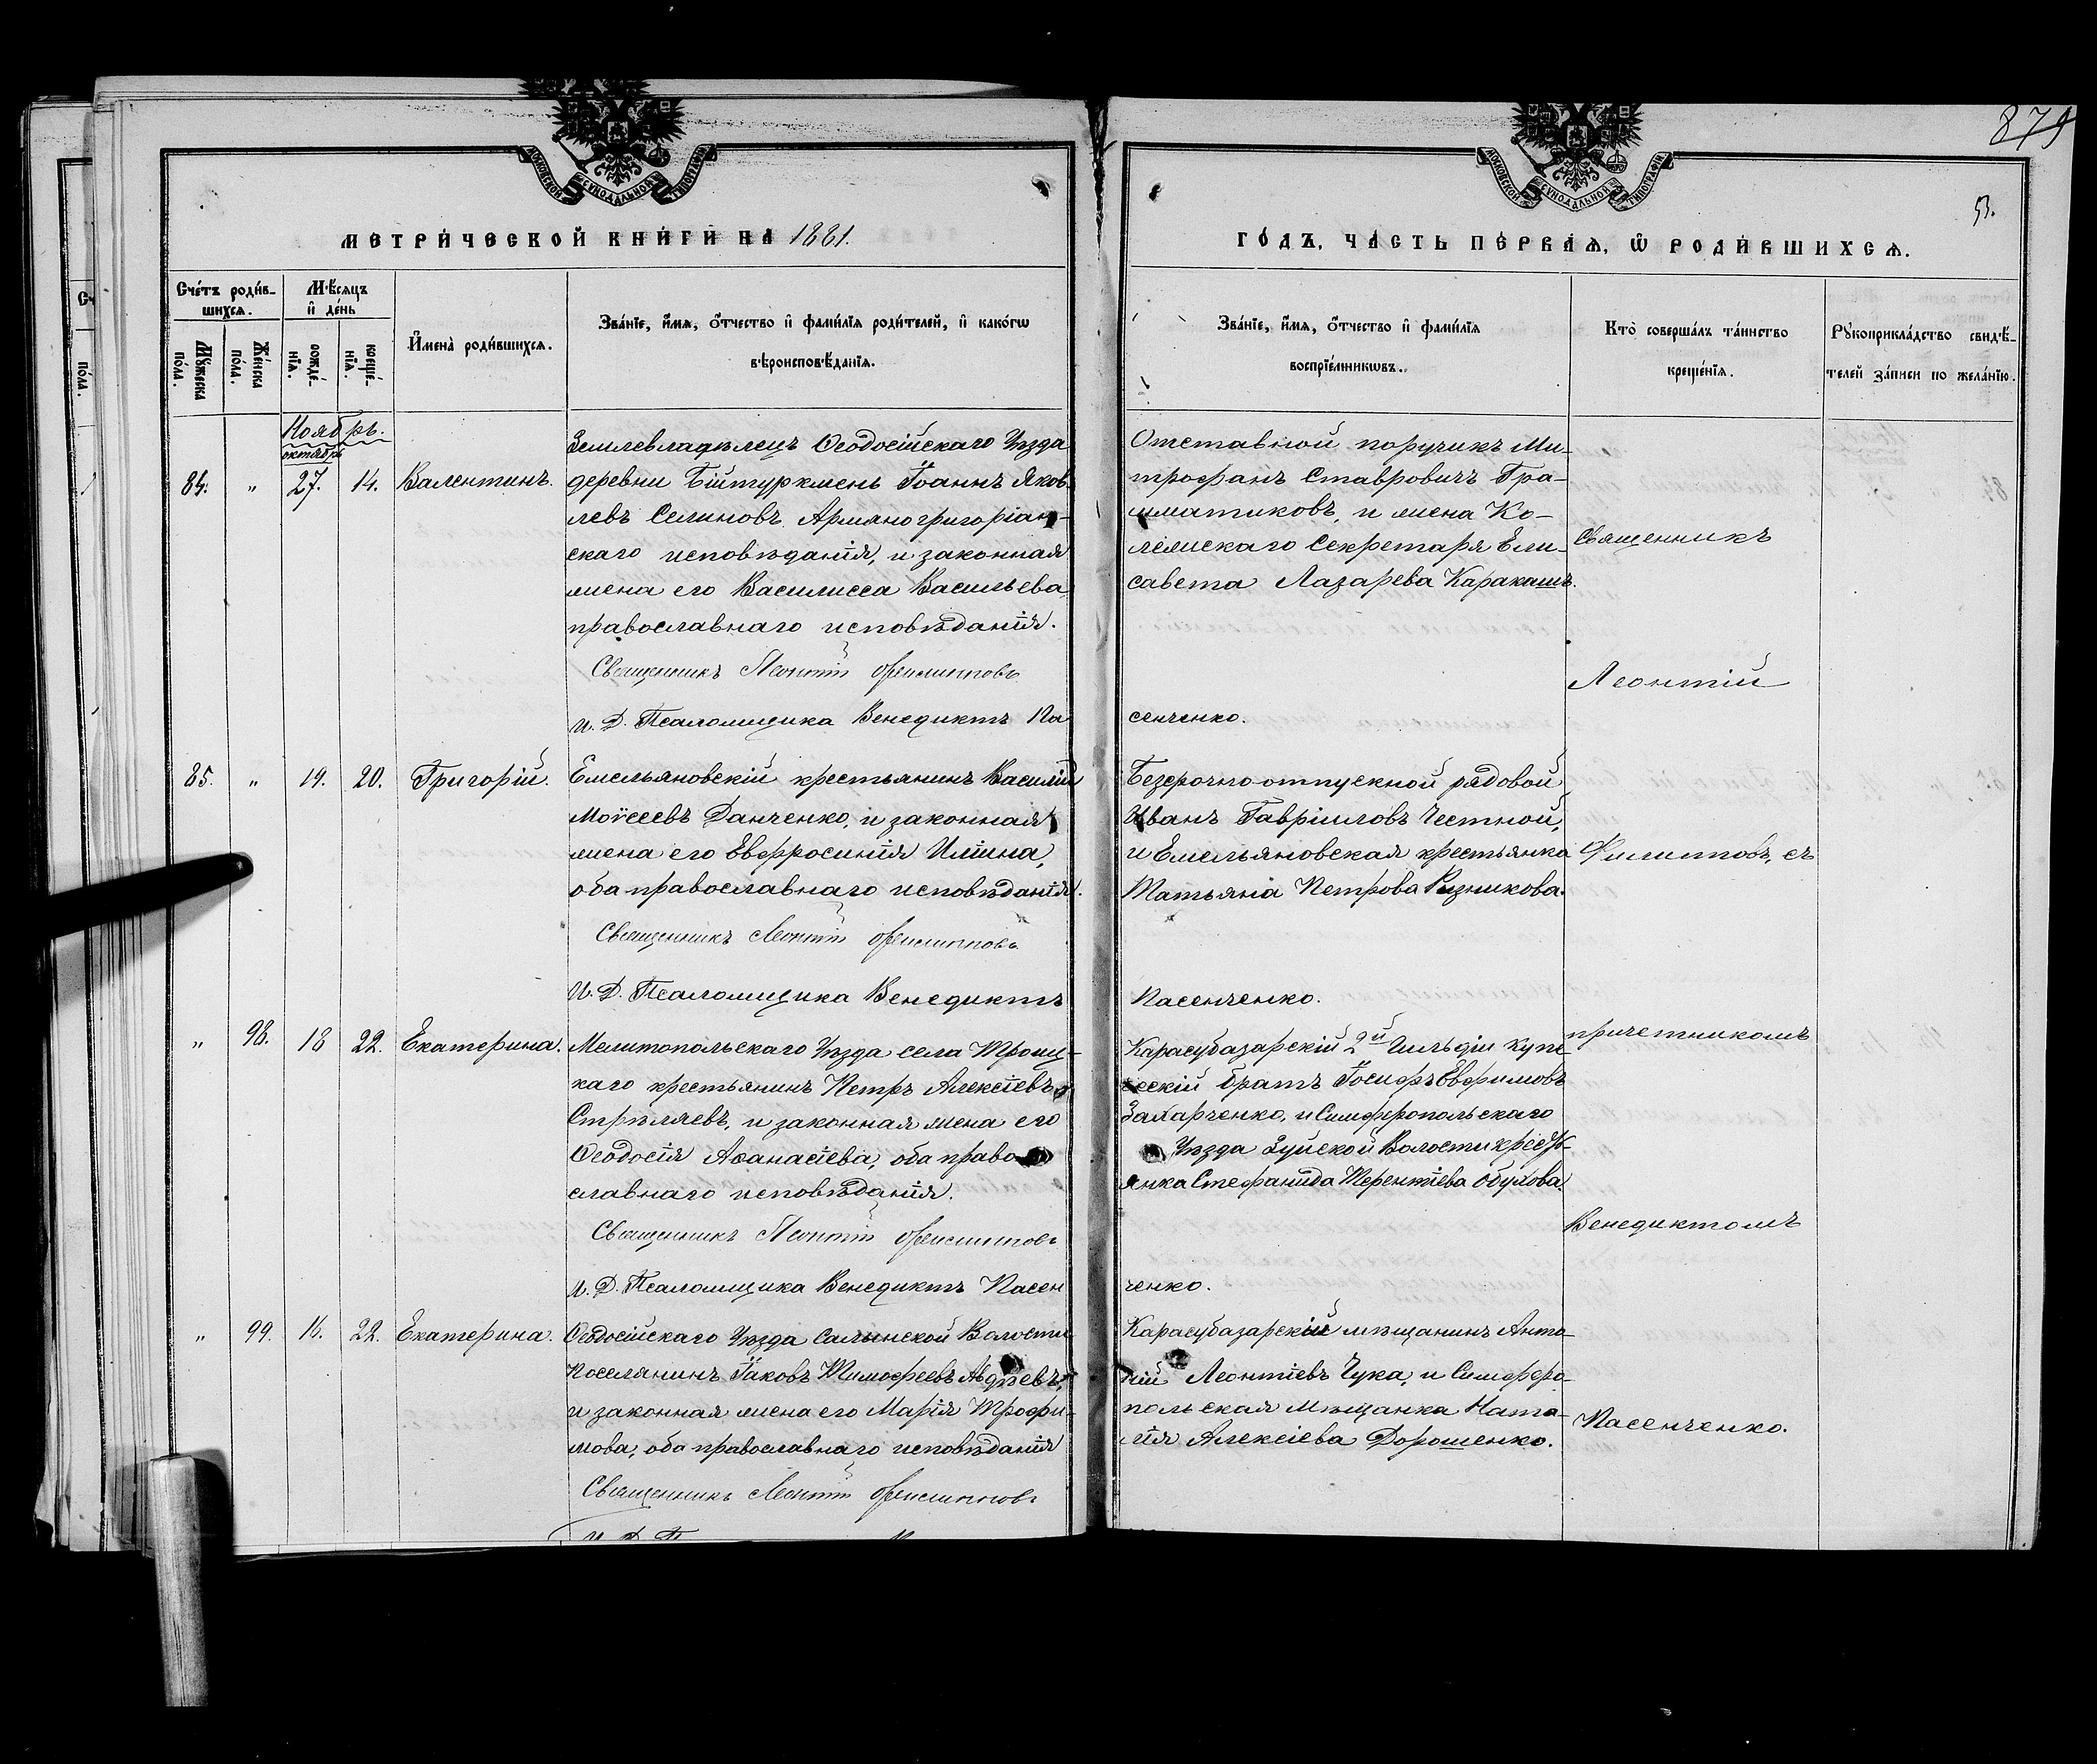 879
53.
МОСКОВСКОЙ СѴНОДАЛЬНОЙ ТИПОГРАФІИ
МОСКОВСКОЙ СѴНОДАЛЬНОЙ ТИПОГРАФІИ
МЕТРИ́ЧЕСКОЙ КНИ́ГИ НА 1881.
ГО́ДЪ, ЧА́СТЬ ПЕ́РВАѦ, Ѡ РОДИ́ВШИХСѦ.
Сче́тъ роди́в-
шихсѧ.
Мѣ́сѧцъ
и де́нь
Му́жеска
по́ла.
Же́нска
по́ла.
рожде́-
нїѧ.
креще́-
нїѧ.
Имена̀ роди́вшихсѧ.
Зва́нїе, и́мѧ, о́тчество и фами́лїѧ роди́телей, и како́гѡ
вѣроисповѣ́данїѧ.
Зва́нїе, и́мѧ, о́тчество и фами́лїѧ
воспрїе́мникѡвъ.
Кто̀ соверша́лъ та́инство
креще́нїѧ.
Рꙋкоприкла́дство свидѣ́-
телей за́писи по жела́нїю.
Ноябрь.
октября
84. " 27. 14. Валентинъ.
Землевладѣлецъ Ѳеодосійскаго Уѣзда
деревни Бійтуркмень Іоаннъ Яков-
левъ Селиновъ, Армяногригоріан-
скаго исповѣданія, и законная
жена его Василисса Васильева
православнаго исповѣданія.
Священникъ Леонтій Филипповъ
И. Д. Псаломщика Венедиктъ Па
Отставной поручикъ Ми-
трофанъ Ставровичъ Гра-
мматиковъ, и жена Ко-
лежскаго Секретаря Ели-
савета Лазарева Каракашъ.
сенченко.
Священникъ
Леонтій
85. " 19. 20. Григорій.
Емельяновскій крестьянинъ Василій
Моѵсеевъ Данченко, и законная
жена его Евфросинія Иліина,
оба православнаго исповѣданія.
Священникъ Леонтій Филипповъ
И. Д. Псаломщика Венедиктъ
Безсрочно-отпускной рядовой
Иванъ Гавріиловъ Честной,
и Емельяновская крестьянка
Татьяна Петрова Рѣзникова.
Пасенченко.
Филипповъ, съ
" 98. 18 22. Екатерина.
Мелитопольскаго Уѣзда села Троиц-
каго крестьянинъ Петръ Алексіевъ
Стрѣляевъ, и законная жена его
Ѳеодосія Аѳанасіева, оба право
славнаго исповѣданія.
Священникъ Леонтій Филипповъ
И. Д. Псаломщика Венедиктъ Пасен
Карасубазарскій 2й Гильдіи купе-
ческій братъ Іосифъ Евфимовъ
Захарченко, и Симферопольскаго
Уѣзда Зуйской Волости крестья-
янка Стефанида Терентіева Обухова.
ченко.
причетникомъ
Венедиктомъ
" 99. 16. 22. Екатерина.
Ѳеодосійскаго Уѣзда Салынской Волости
Поселянинъ Іаковъ Тимофеевъ Авдѣевъ,
и законная жена его Марія Трофи-
мова, оба православнаго исповѣданія
Священникъ Леонтій Филипповъ
И. Д. П
Карасубазарскій мѣщанинъ Анто-
ній Леонтіевъ Чука, и Симферо-
польская Мѣщанка Ната-
лія Алексіева Дорошенко.
Пасенченко.